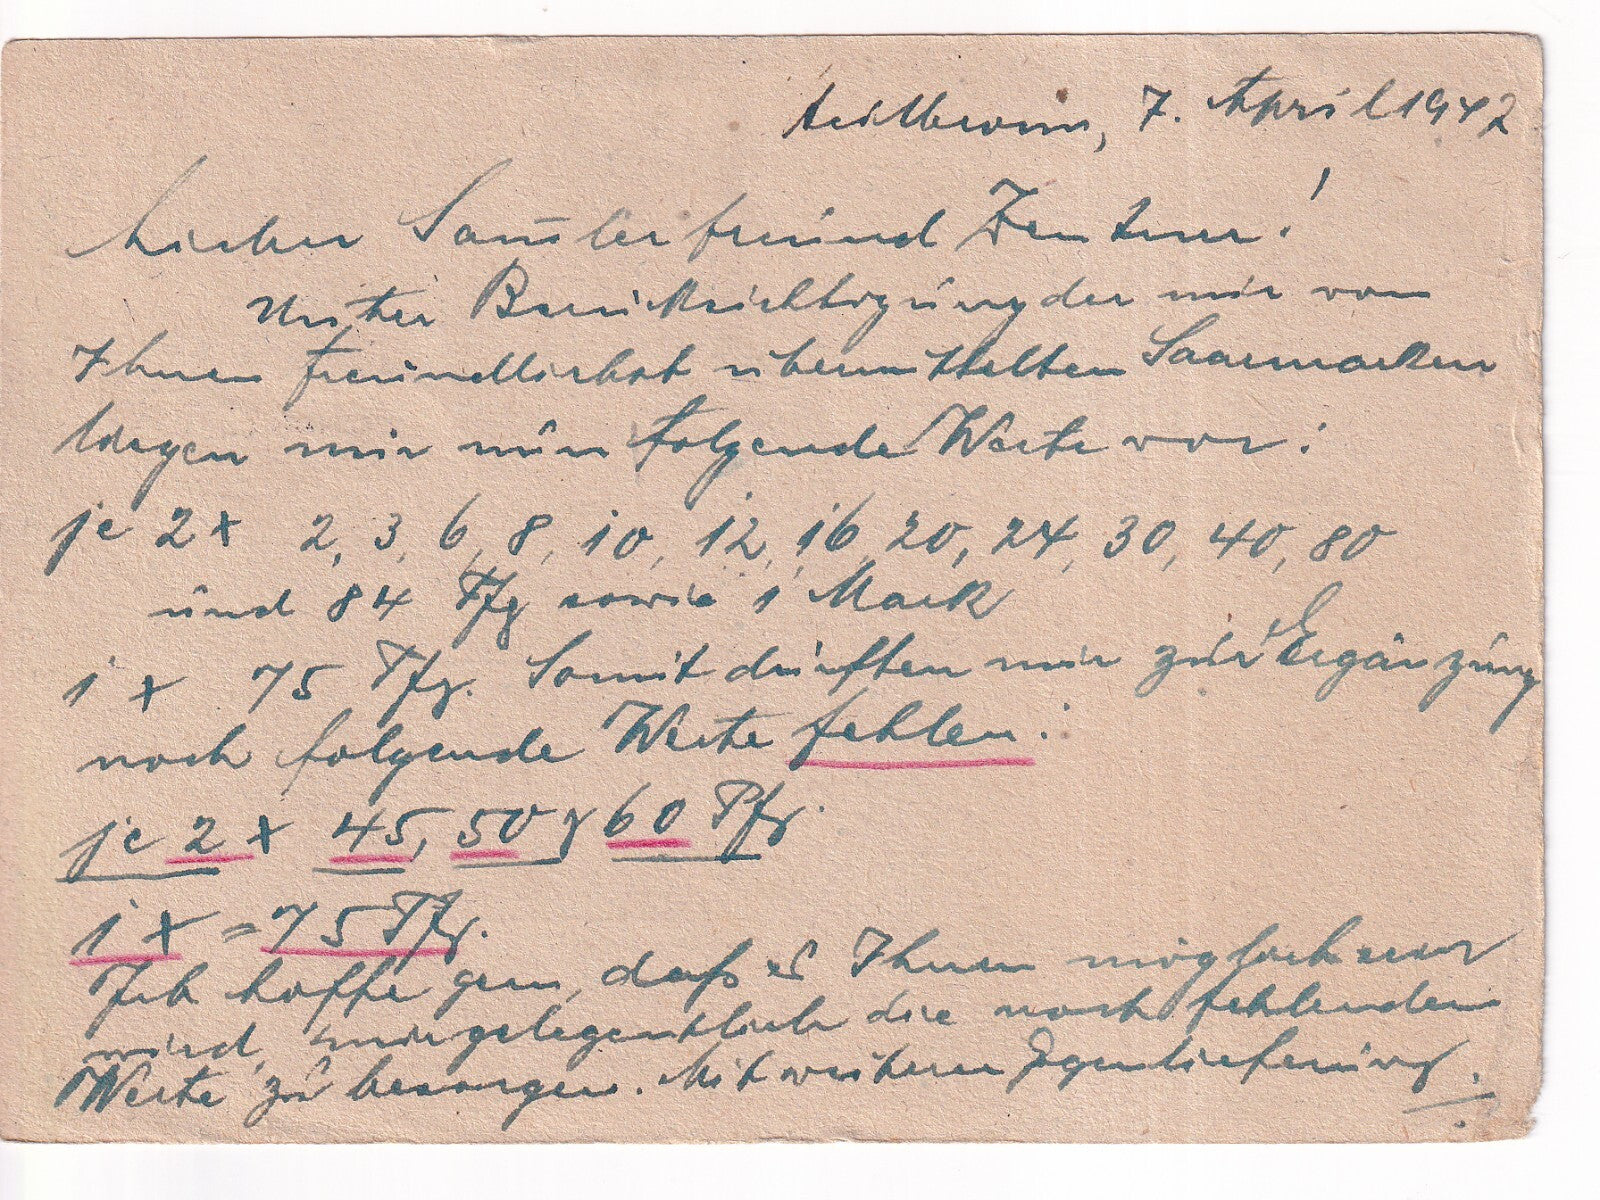 Heilbronn, 7. April 1947
Lieber Sammlerfreund Zentner!
Unter Berücksichtigung der mir von
Ihnen freundlichst übermittelten Saarmarken
liegen mir nun folgende Werte vor:
je 2 x 2, 3, 6, 8, 10, 12, 16, 20, 24, 30, 40, 80
und 84 Pfg sowie 1 Mark
1 x 75 Pfg. Somit dürften mir zur Ergänzung
noch folgende Werte fehlen:
je 2 x 45, 50 & 60 Pfg.
1 x = 75 Pfg.
Ich hoffe gern, daß es Ihnen möglich sein
wird, mir gelegentlich die noch fehlenden
Werte zu besorgen. Mit weiterer Gegenlieferung